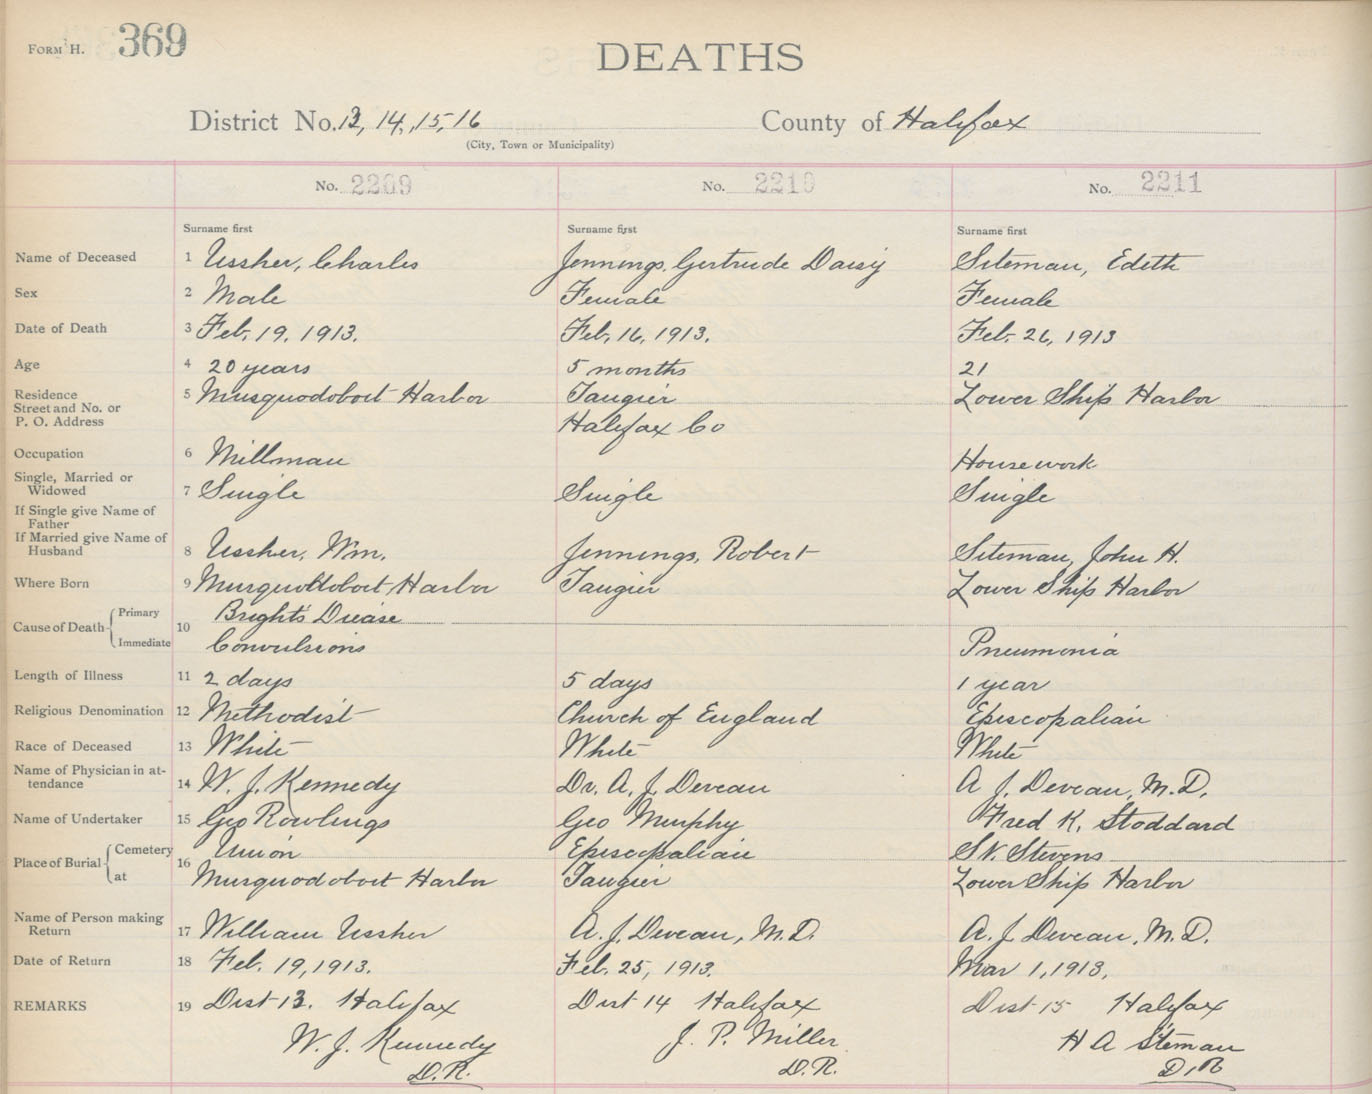 FORM H. 369
DEATHS
District No. 13, 14, 15, 16 County of Halifax
(City, Town or Municipality)
No. 2209 No. 2210 No. 2211
Surname first Surname first Surname first
Name of Deceased 1 Ussher, Charles Jennings, Gertrude Daisy Siteman, Edith
Sex 2 Male Female Female
Date of Death 3 Feb. 19, 1913. Feb. 16, 1913. Feb. 26, 1913
Age 4 20 years 5 months 21
Residence 5 Musquodoboit Harbor Tangier Lower Ship Harbor
Street and No. or
P. O. Address Halifax Co
Occupation 6 Millman Housework
Single, Married or
Widowed 7 Single Single Single
If Single give Name of
Father
If Married give Name of
Husband 8 Ussher, Wm. Jennings, Robert Siteman, John H.
Where Born 9 Musquodoboit Harbor Tangier Lower Ship Harbor
Cause of Death Primary 10 Bright's Diease
Immediate Convulsions Pneumonia
Length of Illness 11 2 days 5 days 1 year
Religious Denomination 12 Methodist Church of England Episcopalian
Race of Deceased 13 White White White
Name of Physician in at-
tendance 14 W. J. Kennedy Dr. A. J. Deveau A J. Deveau, M.D.
Name of Undertaker 15 Geo Rowlings Geo Murphy Fred K. Stoddard
Place of Burial Cemetery 16 Union Episcopalian St. Stevens
at Musquodoboit Harbor Tangier Lower Ship Harbor
Name of Person making
Return 17 William Ussher A. J. Deveau, M.D. A. J. Deveau, M.D.
Date of Return 18 Feb. 19, 1913. Feb. 25, 1913. Mar 1, 1913.
REMARKS 19 Dist 13. Halifax Dist 14 Halifax Dist 15 Halifax
W. J. Kennedy J. P. Miller H A Siteman
D.R. D.R. D.R